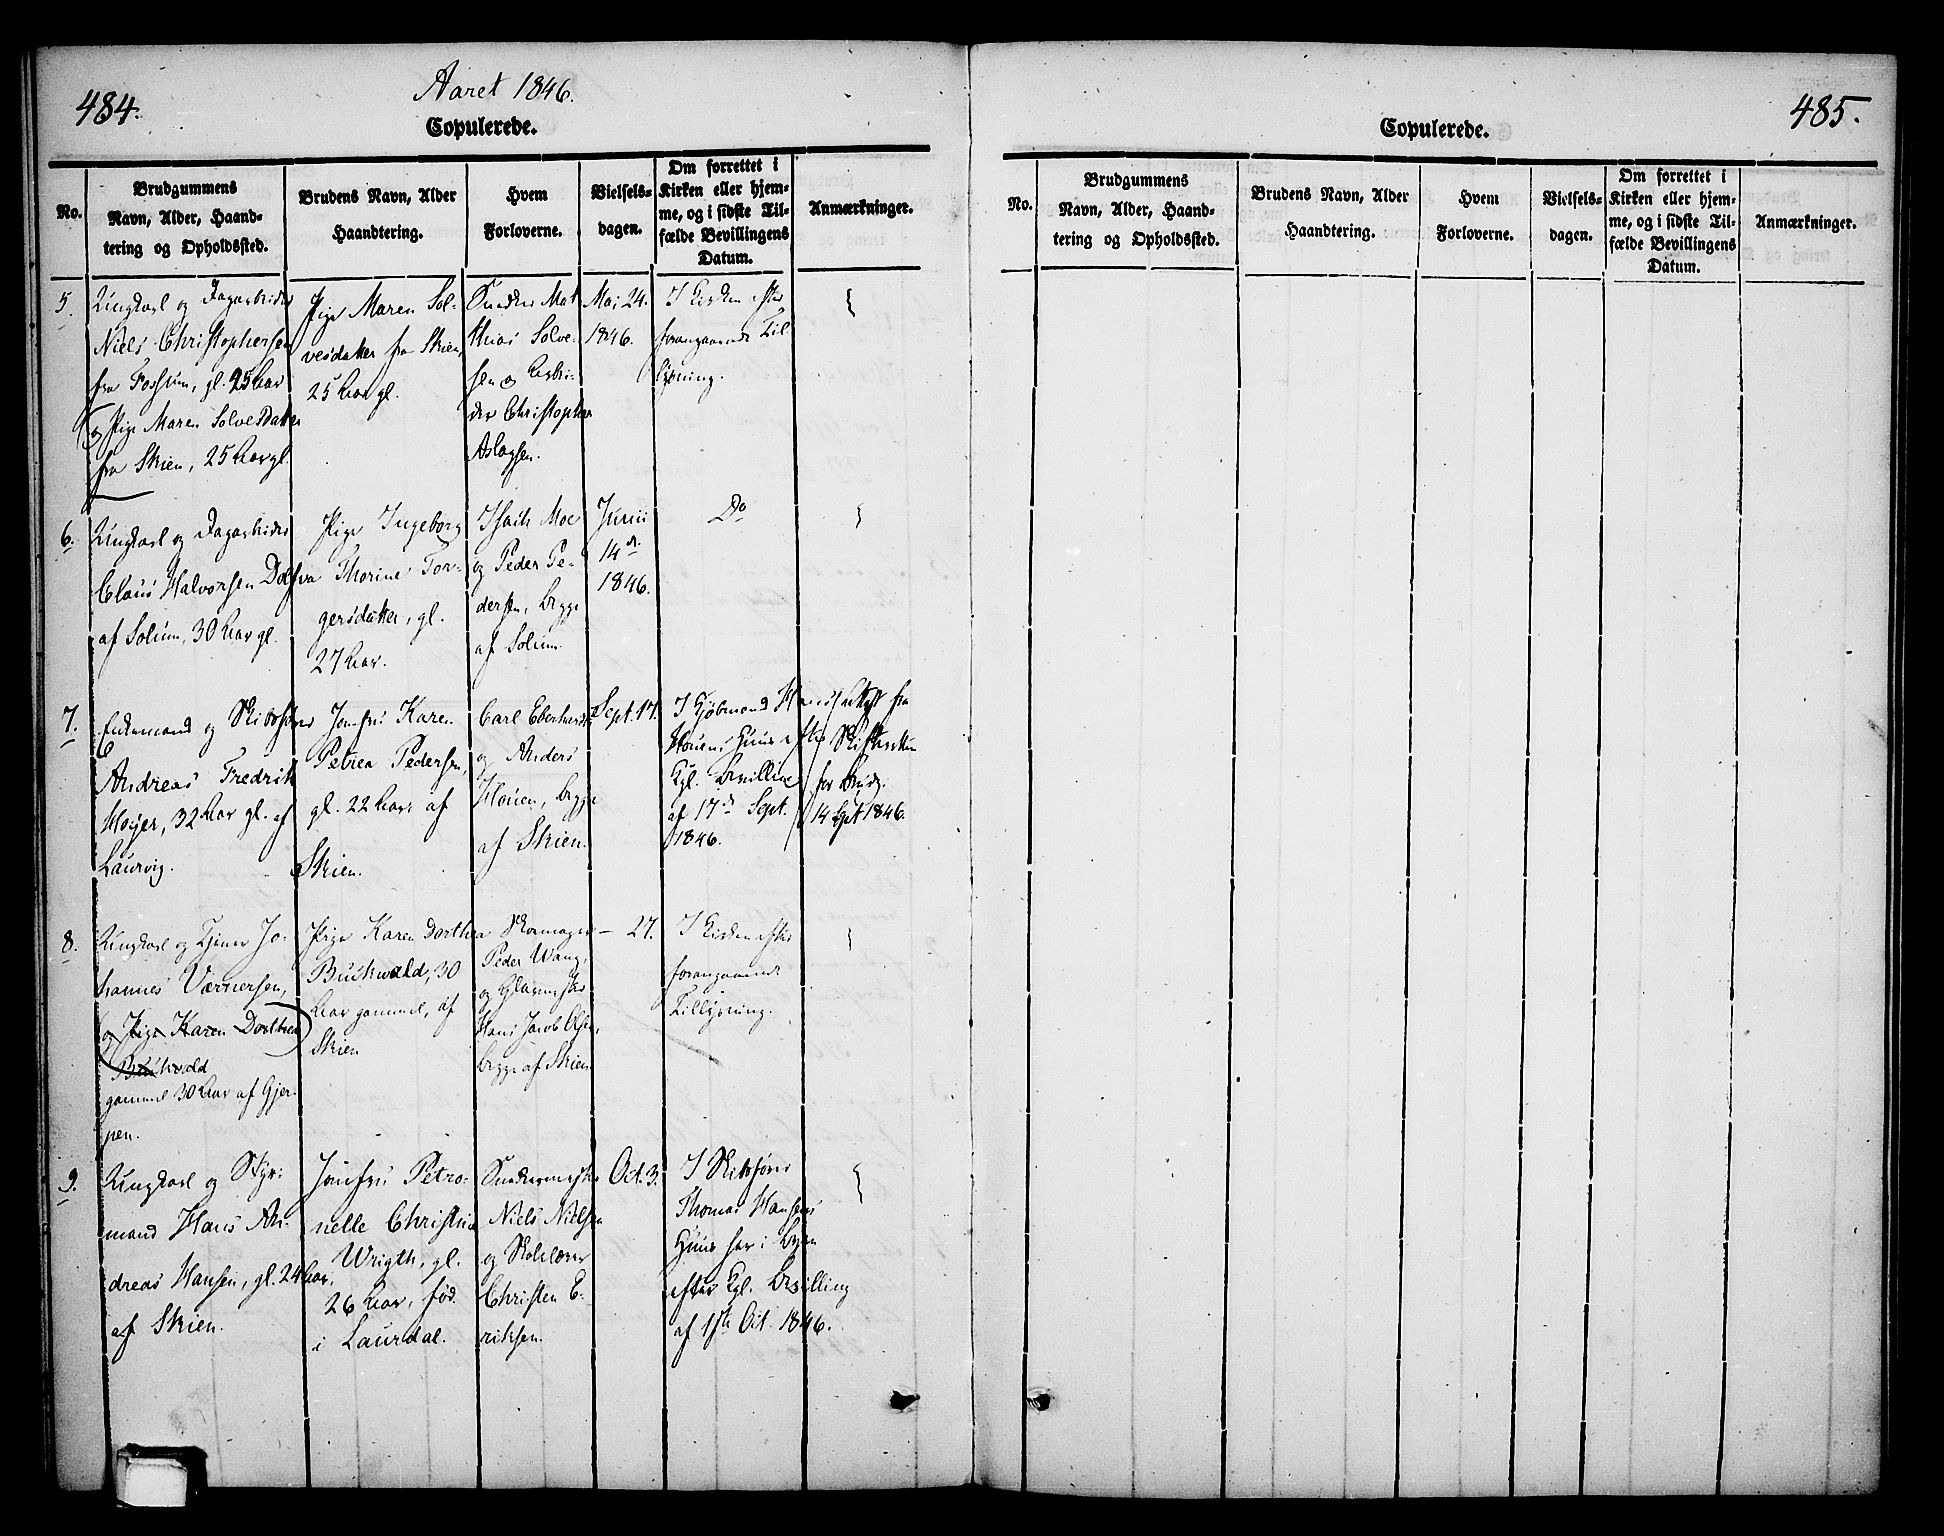 484.
Aaret 1846.
Copulerede.
No.
Brudgummens
Navn, Alder, Haand-
tering og Opholdssted.
Brudens Navn, Alder
Haandtering.
Hvem
Forloverne.
Vielsels-
dagen.
Om forrettet i
Kirken eller hjem-
me, og i sidste Til-
fælde Bevillingens
Datum.
Anmærkninger.
5.
Ungkarl og Dagarbeider
Niels Christophersen
fra Fossum, gl. 25 Aar
og Pige Maren Solvesdatter
fra Skien, 25 Aar gl.
Pige Maren Sol-
vesdatter fra Skien,
25 Aar gl.
Snedker Mat
thias Solve-
sen og Arbei-
der Christopher
Aslagsen.
Mai 24.
1846.
I Kirken efter
foregaaende Til
lysning.
6.
Ungkarl og Dagarbeider
Claus Halvorsen Dolfva
af Solum, 30 Aar gl.
Pige Ingeborg
Thorine Tor-
gersdatter, gl.
27 Aar.
Isach Moe
og Peder Pe-
dersen, begge
af Solum.
Junii
14de
1846.
Do
7.
Enkemand og Skibsfører
Andreas Fredrik
Hoyer, 32 Aar gl. af
Laurvig.
Jomfru Karen
Petrea Pedersen,
gl. 22 Aar, af
Skien.
Carl Eberhardt
og Anders
Houen, begge
af Skien.
Sept. 17.
I Kjøbmand Hans
Houens Huus efter
Kgl. Bevilling
af 17de Sept.
1846.
Attest fra
Skifteretten
for Brudg.
14 Sept 1846.
8.
Ungkarl og Tjener Jo-
hannes Værnersen,
og Pige Karen Dorthea
Buchwald
gammel 30 Aar af Gjer-
pen.
Pige Karen Dorthea
Buchwald, 30
Aar gammel, af
Skien
Skomager
Peder Wang,
og Glarmester
Hans Jacob Olsen,
begge af Skien
— 27.
I Kirken efter
foregaaende
Tillysning.
9.
Ungkarl og Styr-
mand Hans An-
dreas Hansen, gl. 24 Aar,
af Skien.
Jomfru Petro-
nelle Christine
Wrigth, gl.
26 Aar, fød
i Laurdal.
Snedkermester
Niels Nielsen
og Skolelærer
Christen E-
riksen.
Oct. 3.
I Skibsfører
Thomas Hansens
Huus her i Byen
efter Kgl. Bevilling
af 1ste Oct. 1846.
485.
Copulerede.
No.
Brudgummens
Navn, Alder, Haand-
tering og Opholdssted.
Brudens Navn, Alder
Haandtering.
Hvem
Forloverne.
Vielsels-
dagen.
Om forrettet i
Kirken eller hjem-
me, og i sidste Til-
fælde Bevillingens
Datum.
Anmærkninger.